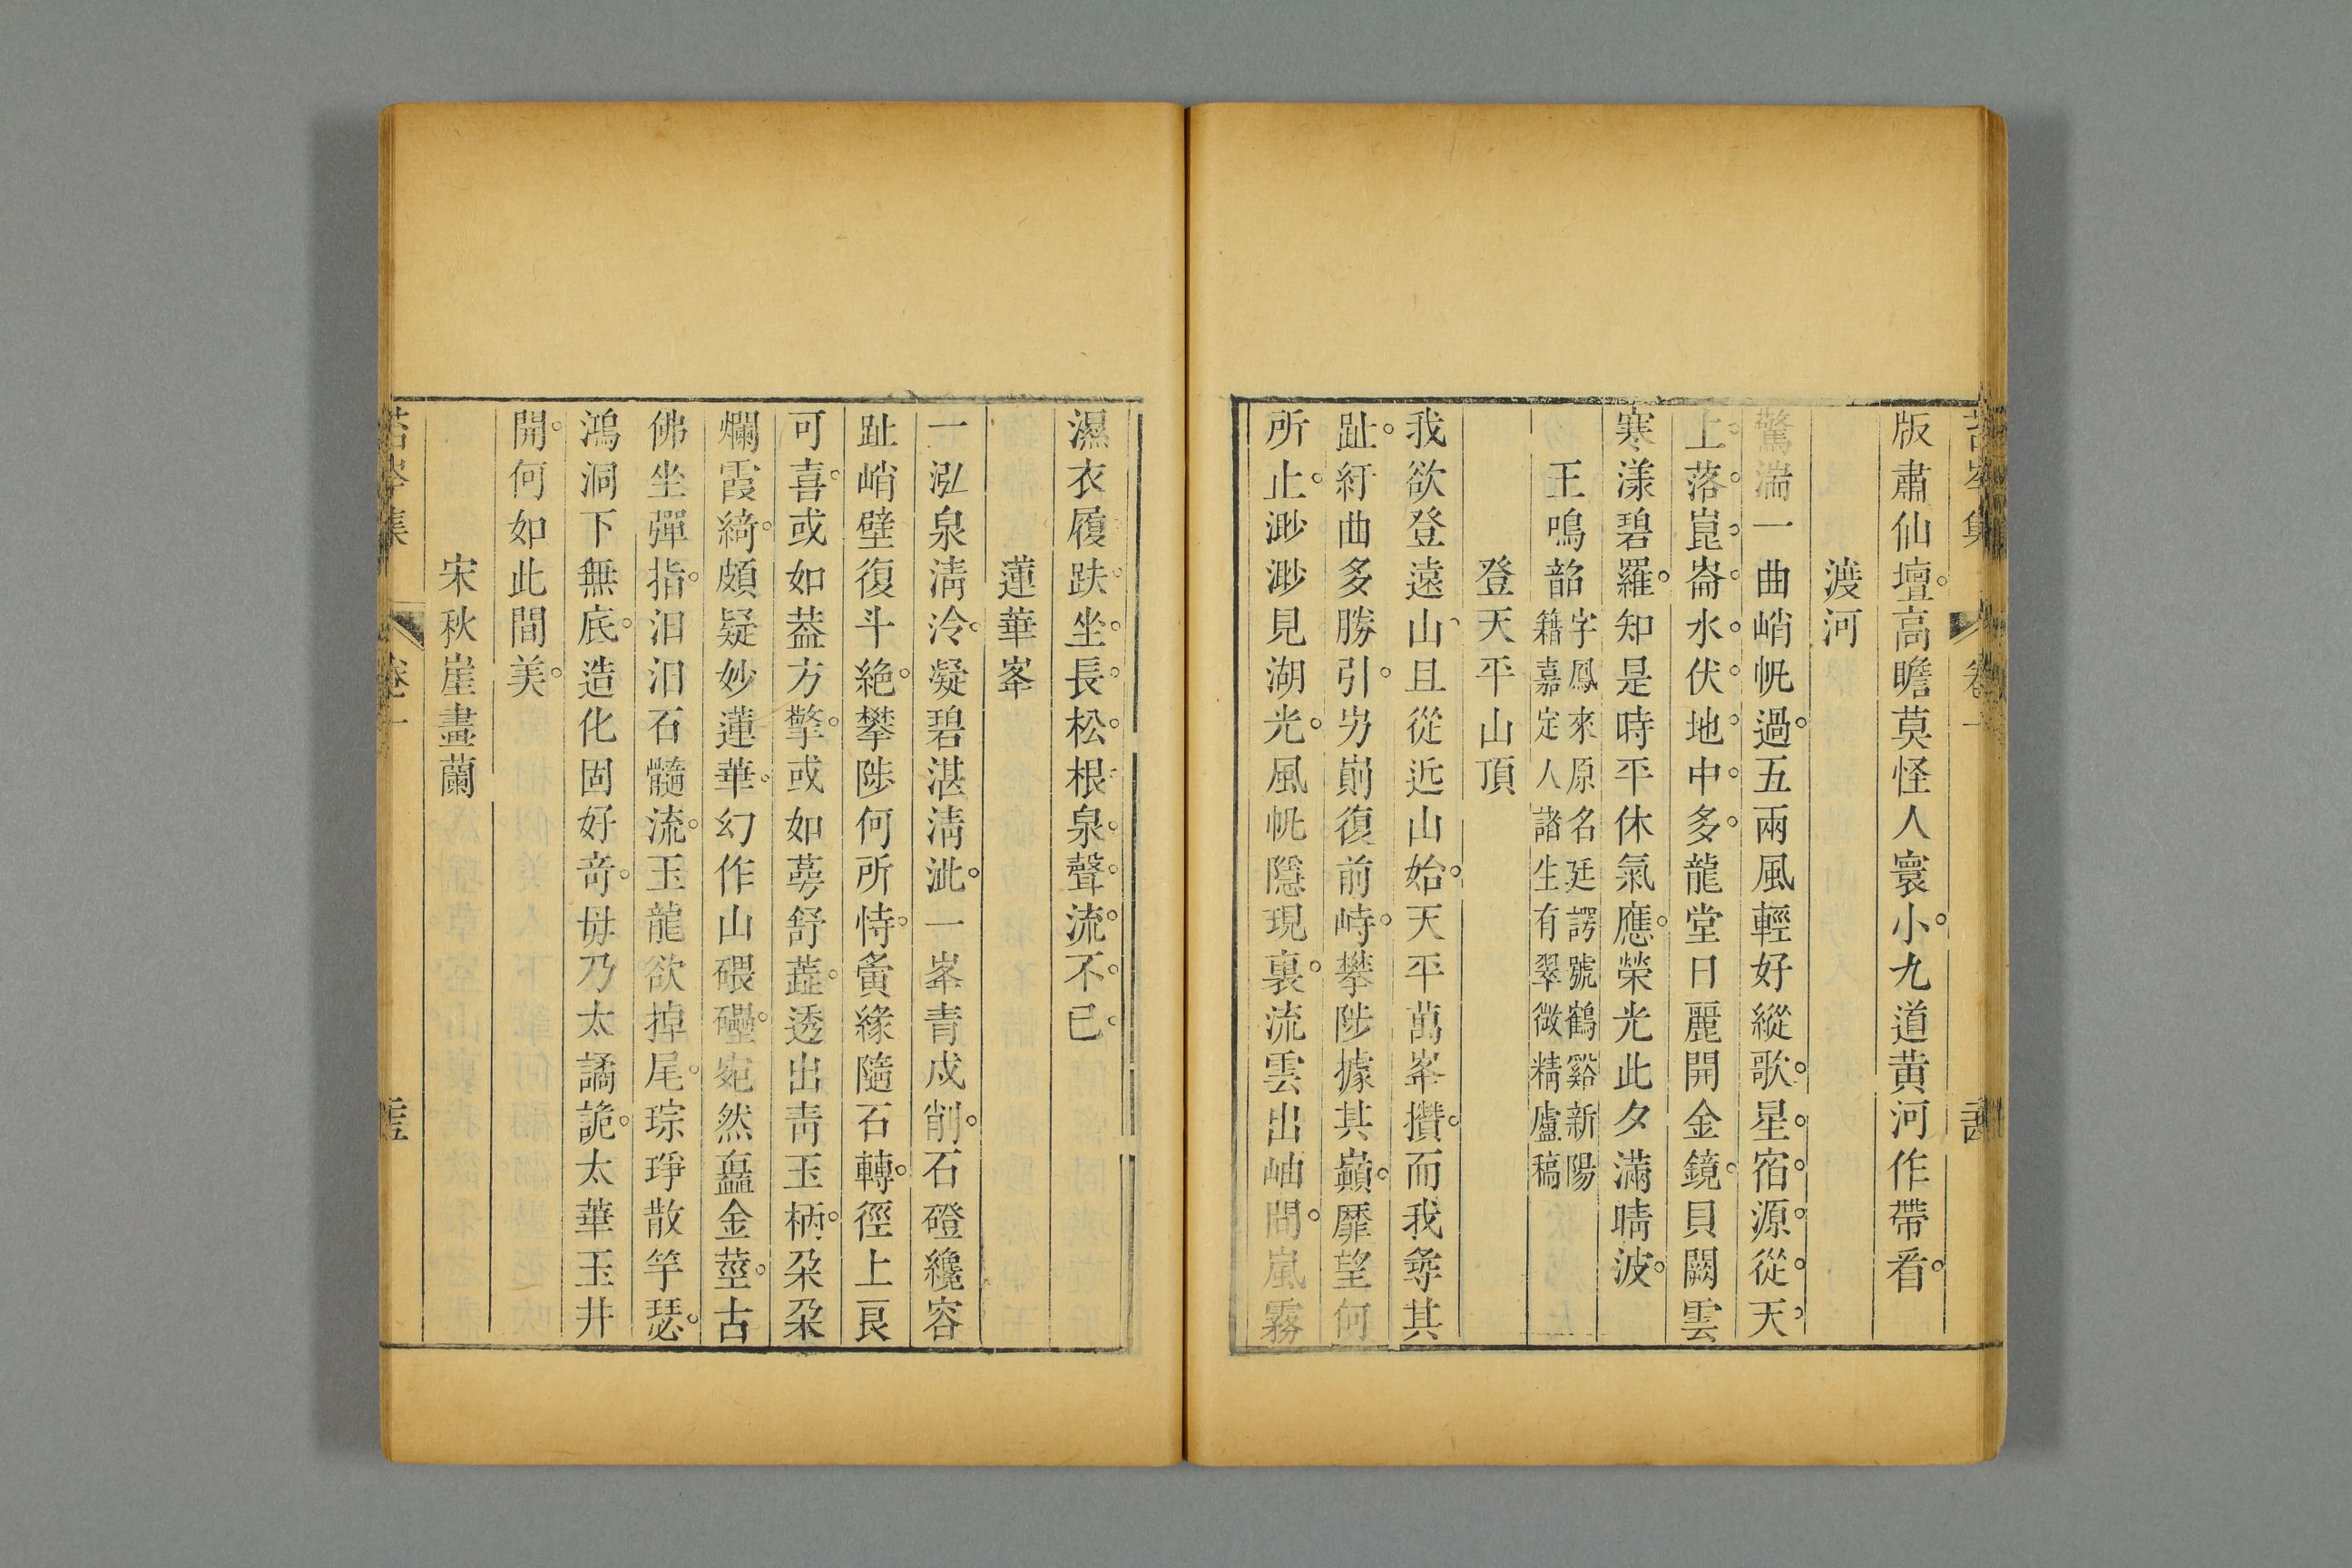 版肅仙壇高瞻莫怪人寰小九道黄河作帶看
渡河
驚湍一曲峭帆過五兩風輕好縱歌星宿源從天
上落崑崙水伏地中多龍堂日麗開金鏡貝闕雲
寒漾碧羅知是時平休氣應榮光此夕滿晴波
王鳴韶字鳳來原名廷諤號鶴谿新陽
籍嘉定人諸生有翠微精廬稿
登天平山頂
我欲登遠山且從近山始天平萬峯攢而我尋其
趾紆曲多勝引屴崱復前峙攀陟據其巔靡望何
所止渺渺見湖光風帆隱現裏流雲出岫間嵐霧
濕衣履趺坐長松根泉聲流不已
蓮華峯
一泓泉淸泠凝碧湛淸泚一峯青成削石磴纔容
趾峭壁復斗絶攀陟何所恃夤緣隨石轉徑上良
可喜或如葢方擎或如萼舒蕋透出靑玉柄朶朶
爛霞綺頗疑妙蓮華幻作山磈礨宛然矗金莖古
佛坐彈指汩汩石髓流玉龍欲掉尾琮琤散竽瑟
鴻洞下無底造化固好奇毋乃太譎詭太華玉井
開何如此間美
宋秋崖畫蘭